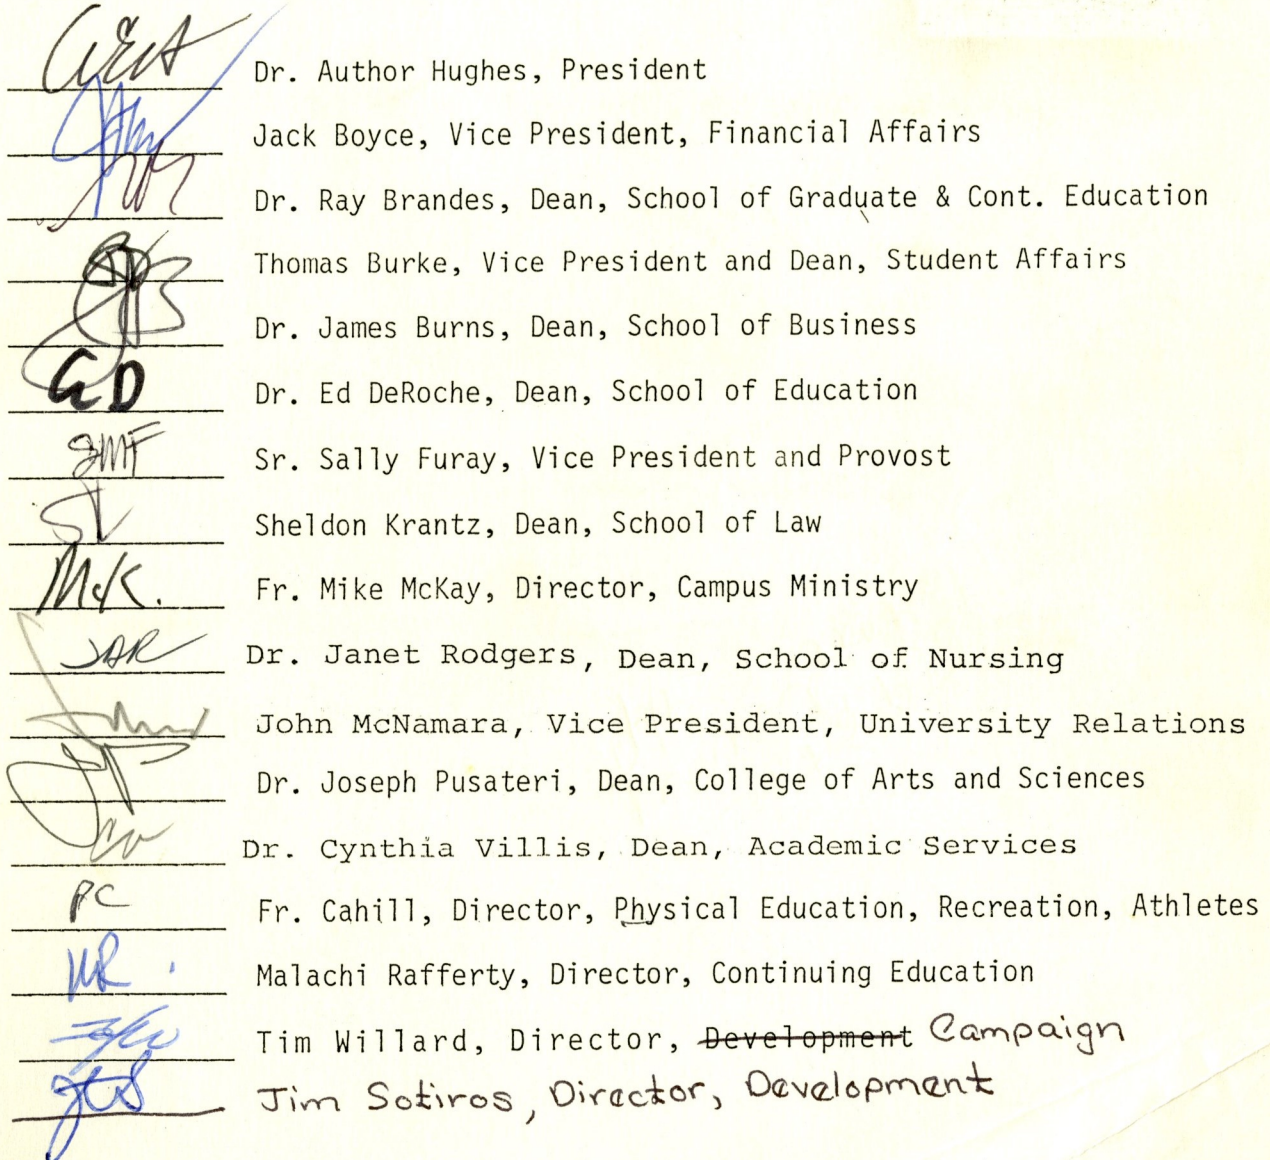 Dr. Author Hughes, President
Jack Boyce, Vice President, Financial Affairs
Dr. Ray Brandes, Dean, School of Graduate & Cont. Education
Thomas Burke, Vice President and Dean, Student Affairs
Dr. James Burns, Dean, School of Business
GD Dr. Ed DeRoche, Dean, School of Education
SMF Sr. Sally Furay, Vice President and Provost
Sheldon Krantz, Dean, School of Law
McK. Fr. Mike McKay, Director, Campus Ministry
JAR Dr. Janet Rodgers, Dean, School of Nursing
John McNamara, Vice President, University Relations
Dr. Joseph Pusateri, Dean, College of Arts and Sciences
CV Dr. Cynthia Villis, Dean, Academic Services
PC Fr. Cahill, Director, Physical Education, Recreation, Athletes
MR Malachi Rafferty, Director, Continuing Education
Tim Willard, Director, Development Campaign
Jim Sotiros, Director, Development